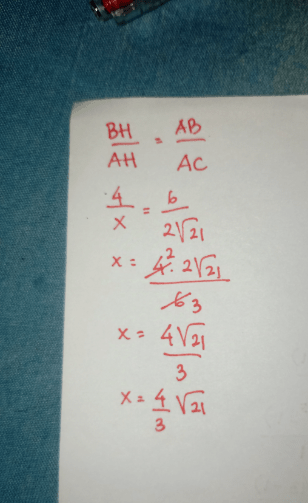 BH/AH = AB/AC
4/x = 6/2√21
x = 4² · 2√21 / 6 3
x = 4√21/3
x = 4/3 √21